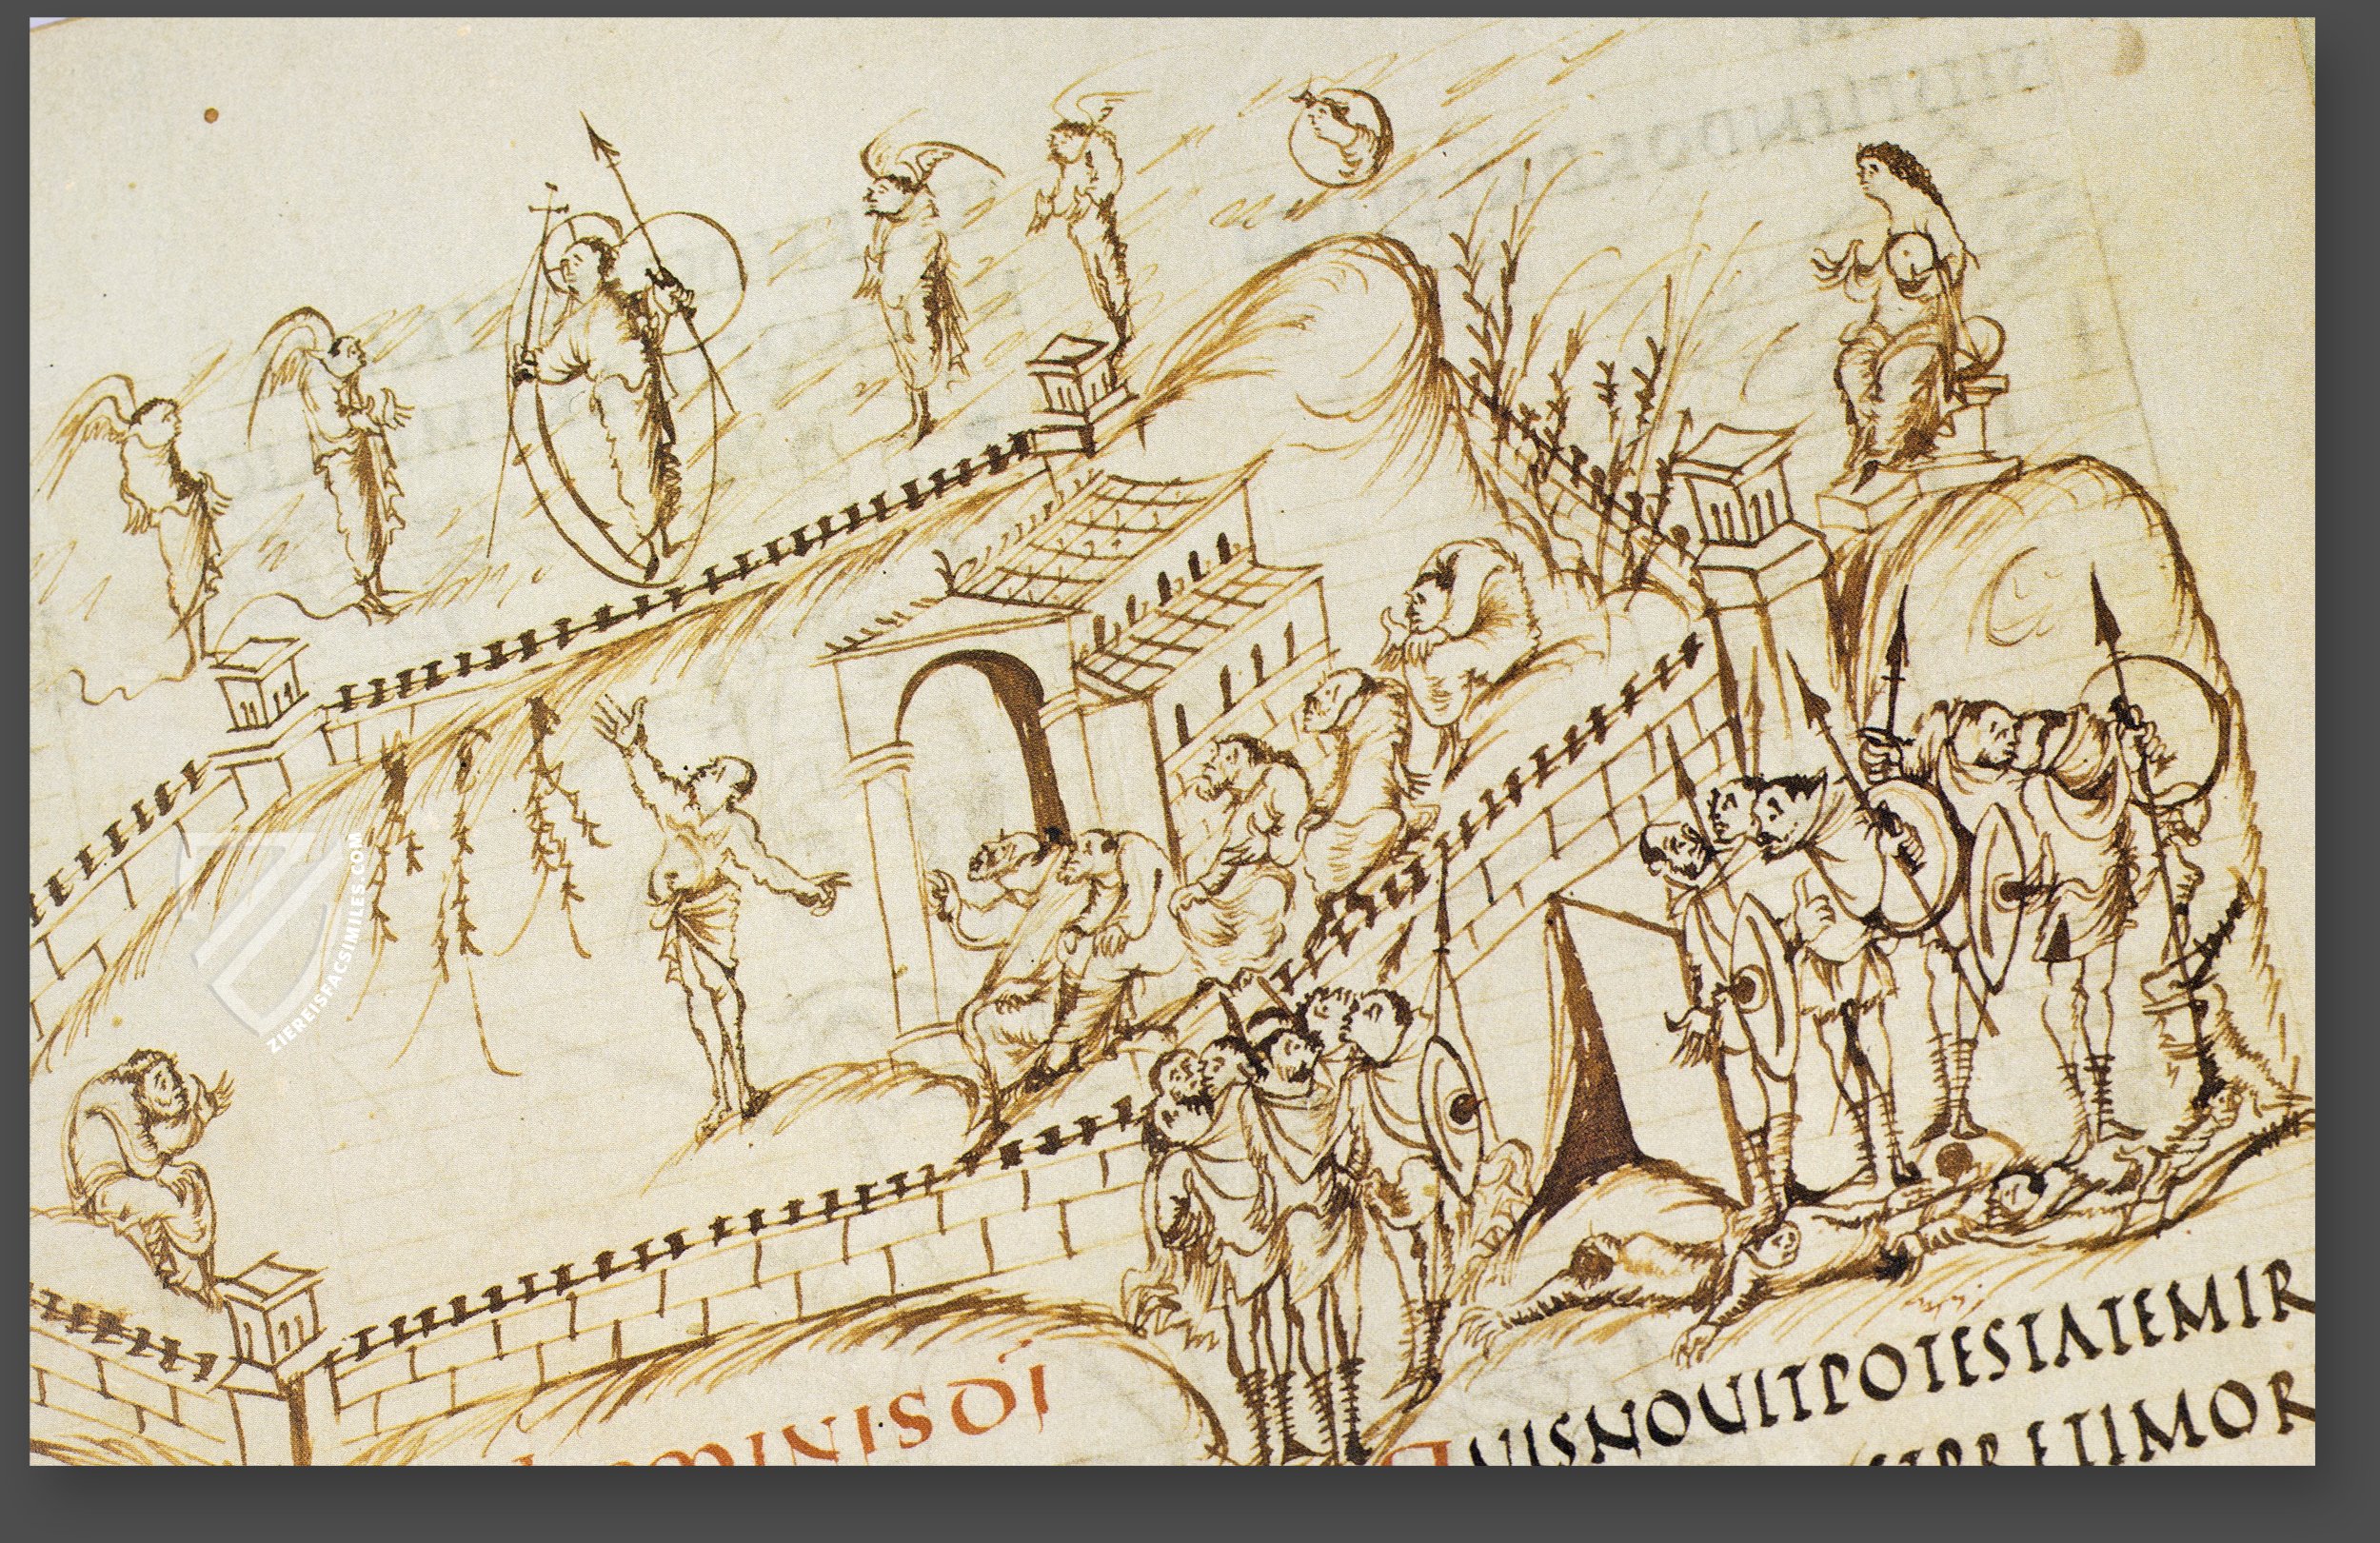 ZIEREISFACSIMILES.COM
MINISDI
QUISNOUITPOTESTATEMIR
ETIMOR